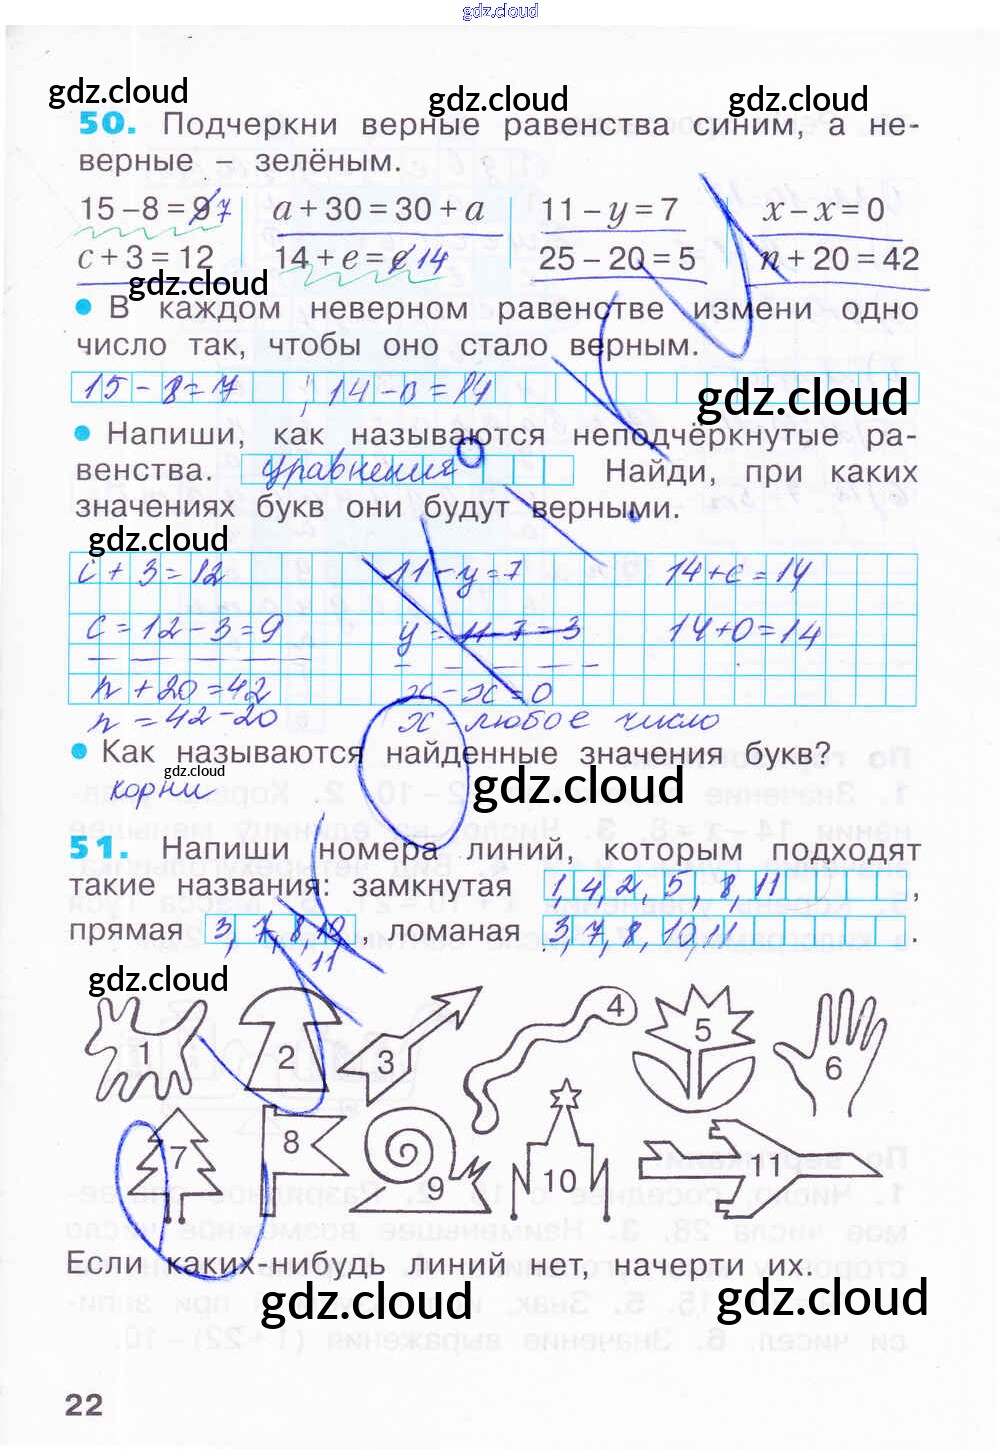 gdz.cloud
gdz.cloud gdz.cloud gdz.cloud
50. Подчеркни верные равенства синим, а не-
верные – зелёным.
15 – 8 = 9 7 a + 30 = 30 + a 11 – y = 7 x – x = 0
c + 3 = 12 14 + e = e 14 25 – 20 = 5 n + 20 = 42
gdz.cloud
• В каждом неверном равенстве измени одно
число так, чтобы оно стало верным.
15 - 8 = 7 ; 14 - 0 = 14
gdz.cloud
• Напиши, как называются неподчёркнутые ра-
венства. уравнения Найди, при каких
значениях букв они будут верными.
gdz.cloud
c + 3 = 12 11 - y = 7 14 + e = 14
c = 12 - 3 = 9 y = 11 - 7 = 3 14 + 0 = 14
n + 20 = 42 x - x = 0
n = 42 - 20 x - любое число
• Как называются найденные значения букв?
корни gdz.cloud gdz.cloud
51. Напиши номера линий, которым подходят
такие названия: замкнутая 1, 4, 2, 5, 8, 11 ,
прямая 3, 7, 8, 10, 11 , ломаная 3, 7, 8, 10, 11 .
gdz.cloud
1 2 3 4 5 6
7 8 9 10 11
Если каких-нибудь линий нет, начерти их.
gdz.cloud gdz.cloud
22